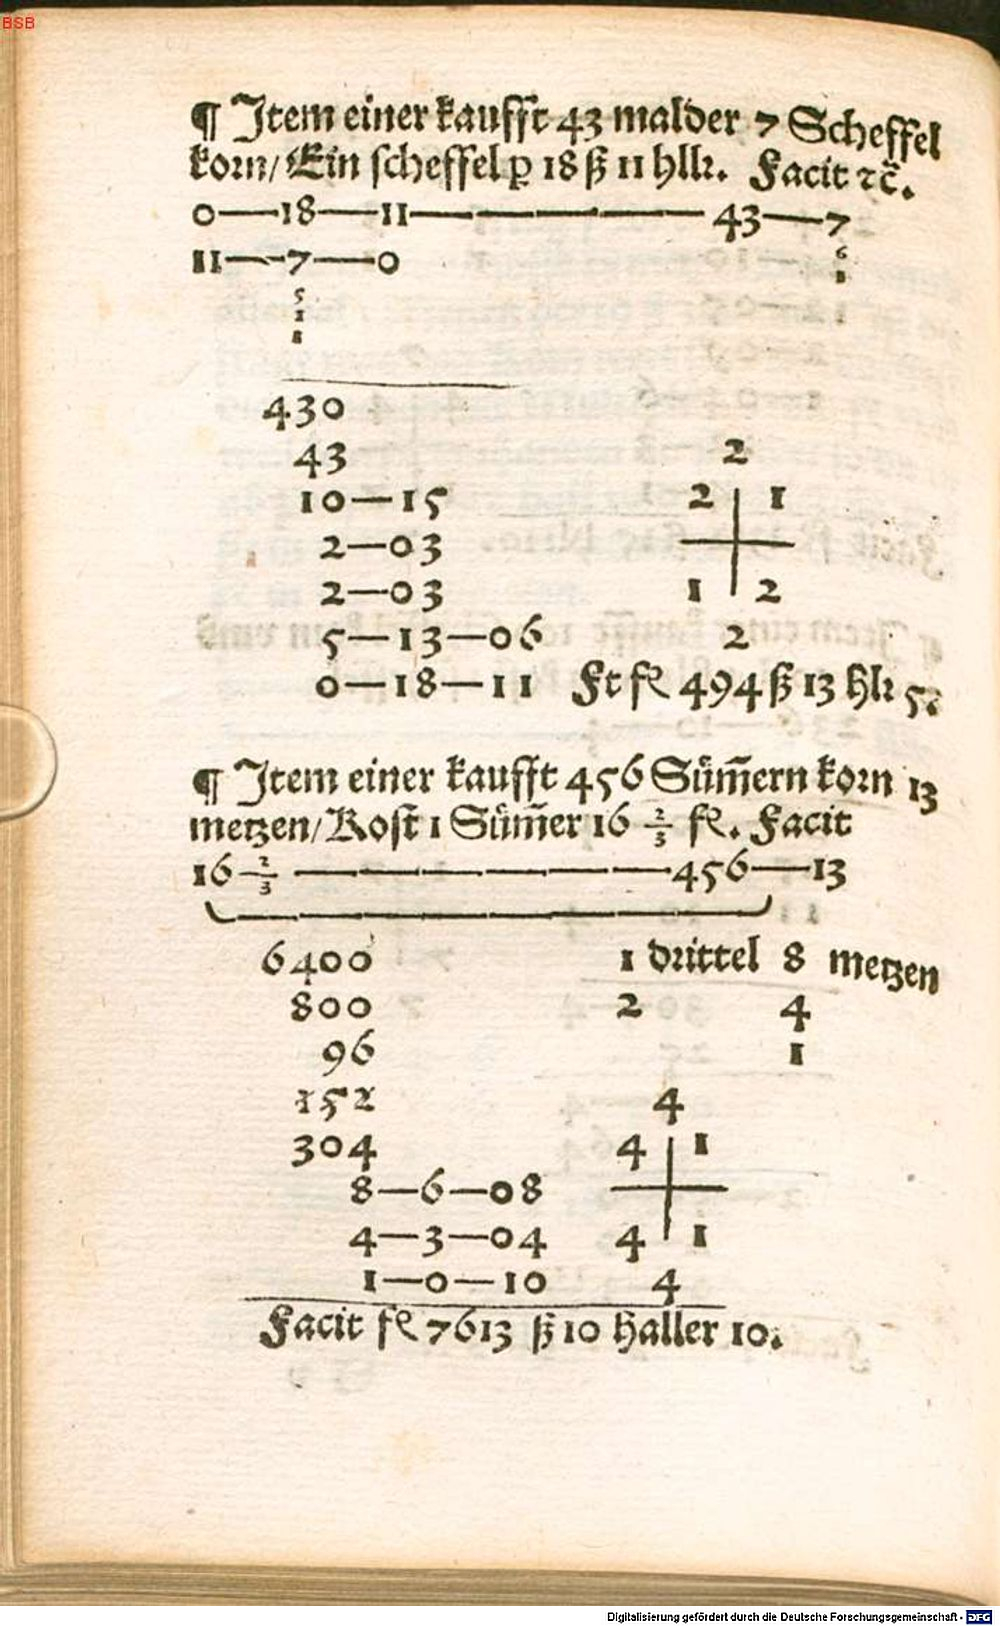 BSB
¶ Jtem einer kaufft 43 malder 7 Scheffel
korn/ Ein scheffel ꝑ 18 ß 11 hllr. Facit ꝛc̄.
0—18—11——————43—7
11—7—0 6
5 1
1
1
430
43 2
10—15 2 1
2—03
2—03 1 2
5—13—06 2
0—18—11 Ft fl 494 ß 13 hlr 5.
¶ Jtem einer kaufft 456 Süm̄ern korn 13
metzen/ Kost 1 Süm̄er 16 2/3 fl. Facit
16 2/3 ——————456—13
6400 1 drittel 8 metzen
800 2 4
96 1
152 4
304 4 1
8—6—08
4—3—04 4 1
1—0—10 4
Facit fl 7613 ß 10 haller 10.
Digitalisierung gefördert durch die Deutsche Forschungsgemeinschaft - DFG